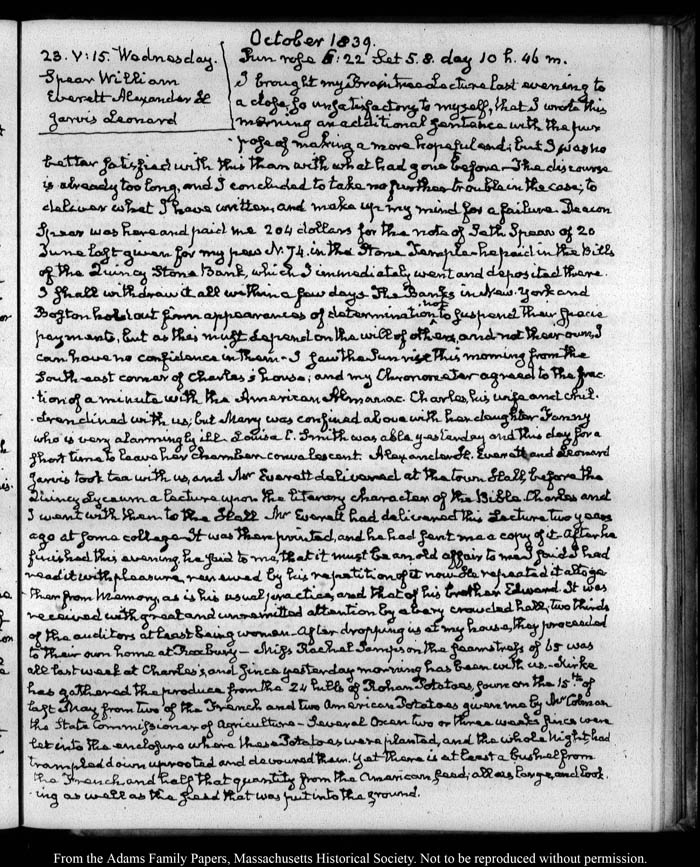 October 1839.
23. V:15. Wednesday.
Spear William
Everett Alexander H
Jarvis Leonard
Sun rose 6:22 Set 5.8. day 10 h. 46 m.
I brought my Braintree Lecture last evening to
a close, so unsatisfactory to myself, that I wrote this
morning an additional sentence with the pur
pose of making a more hopeful end; but I was no
better satisfied with this than with what had gone before. The discourse
is already too long, and I concluded to take no further trouble in the case; to
deliver what I have written, and make up my mind for a failure. Deacon
Spear was here and paid me 204 dollars for the note of Seth Spear of 20
June last given for my pew N. 74. in the Stone Temple he paid in the Bills
of the Quincy Stone Bank, which I immediately went and deposited there.
I shall withdraw it all within a few days. The Banks in New-York and
Boston hold out firm appearances of determination not to suspend their specie
payments, but as this must depend on the will of others, and not their own, I
can have no confidence in them - I saw the Sun rise this morning from the
South-east corner of Charles's house; and my Chronometer agreed to the frac-
tion of a minute with the American Almanac. Charles, his wife and chil-
dren dined with us; but Mary was confined above with her daughter Fanny
who is very alarmingly ill. Louisa C. Smith was able yesterday and this day for a
short time to leave her chamber convalescent. Alexander H. Everett and Leonard
Jarvis took tea with us, and Mr Everett delivered at the town Hall, before the
Quincy Lyceum a lecture upon the literary character of the Bible. Charles and
I went with them to the Hall. Mr Everett had delivered this Lecture two years
ago at some college. It was then printed, and he had sent me a copy of it. After he
finished this evening, he said to me, that it must be an old affair to me. I said I had
read it with pleasure, renewed by his repetition of it now. He repeated it altoge
ther from Memory, as is his usual practice, and that of his brother Edward. It was
received with great and unremitted attention by a very crowded hall; two thirds
of the auditors at least being women. After dropping us at my house, they proceeded
to their own home at Roxbury - Miss Rachel Sampson the seamstress of 65 was
all last week at Charles's, and since yesterday morning has been with us. - Kirke
has gathered the produce from the 24 hills of Rohan Potatoes, sown on the 15th of
last May from two of the French and two American Potatoes given me by Mr Colman
the State Commissioner of Agriculture - Several Oxen two or three weeks since were
let into the enclosure where these Potatoes were planted, and the whole Night, had
trampled down uprooted and devoured them. Yet there is at least a bushel from
the French and half that quantity from the American, seed; all as large, and look-
ing as well as the seed that was put into the ground.
From the Adams Family Papers, Massachusetts Historical Society. Not to be reproduced without permission.